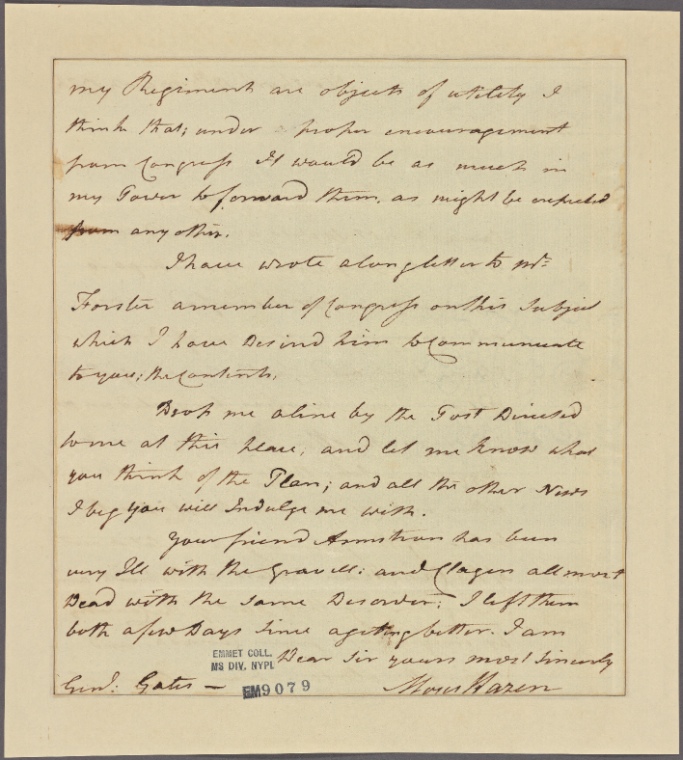 my Regiment are objects of utility I
think that; under proper encouragement
from Congress It would be as much in
my Power to forward them, as might be expected
from any other.
I have wrote a long letter to Mr:
Forster a member of Congress on this Subject
which I have Desired him to Communicate
to you; the Contents.
Drop me a line by the Post Directed
to me at this place, and let me know what
you think of the Plan; and all the other News
I beg you will Indulge me with.
Your friend Armstron has been
very Ill with the Gravell: and Clagen allmost
Dead with the same Desorder; I left them
both a few Days since a geting better. I am
Dear Sir yours most Sincerely
Genl: Gates — Moses Hazen
EMMET COLL.
MS DIV. NYPL
EM9079